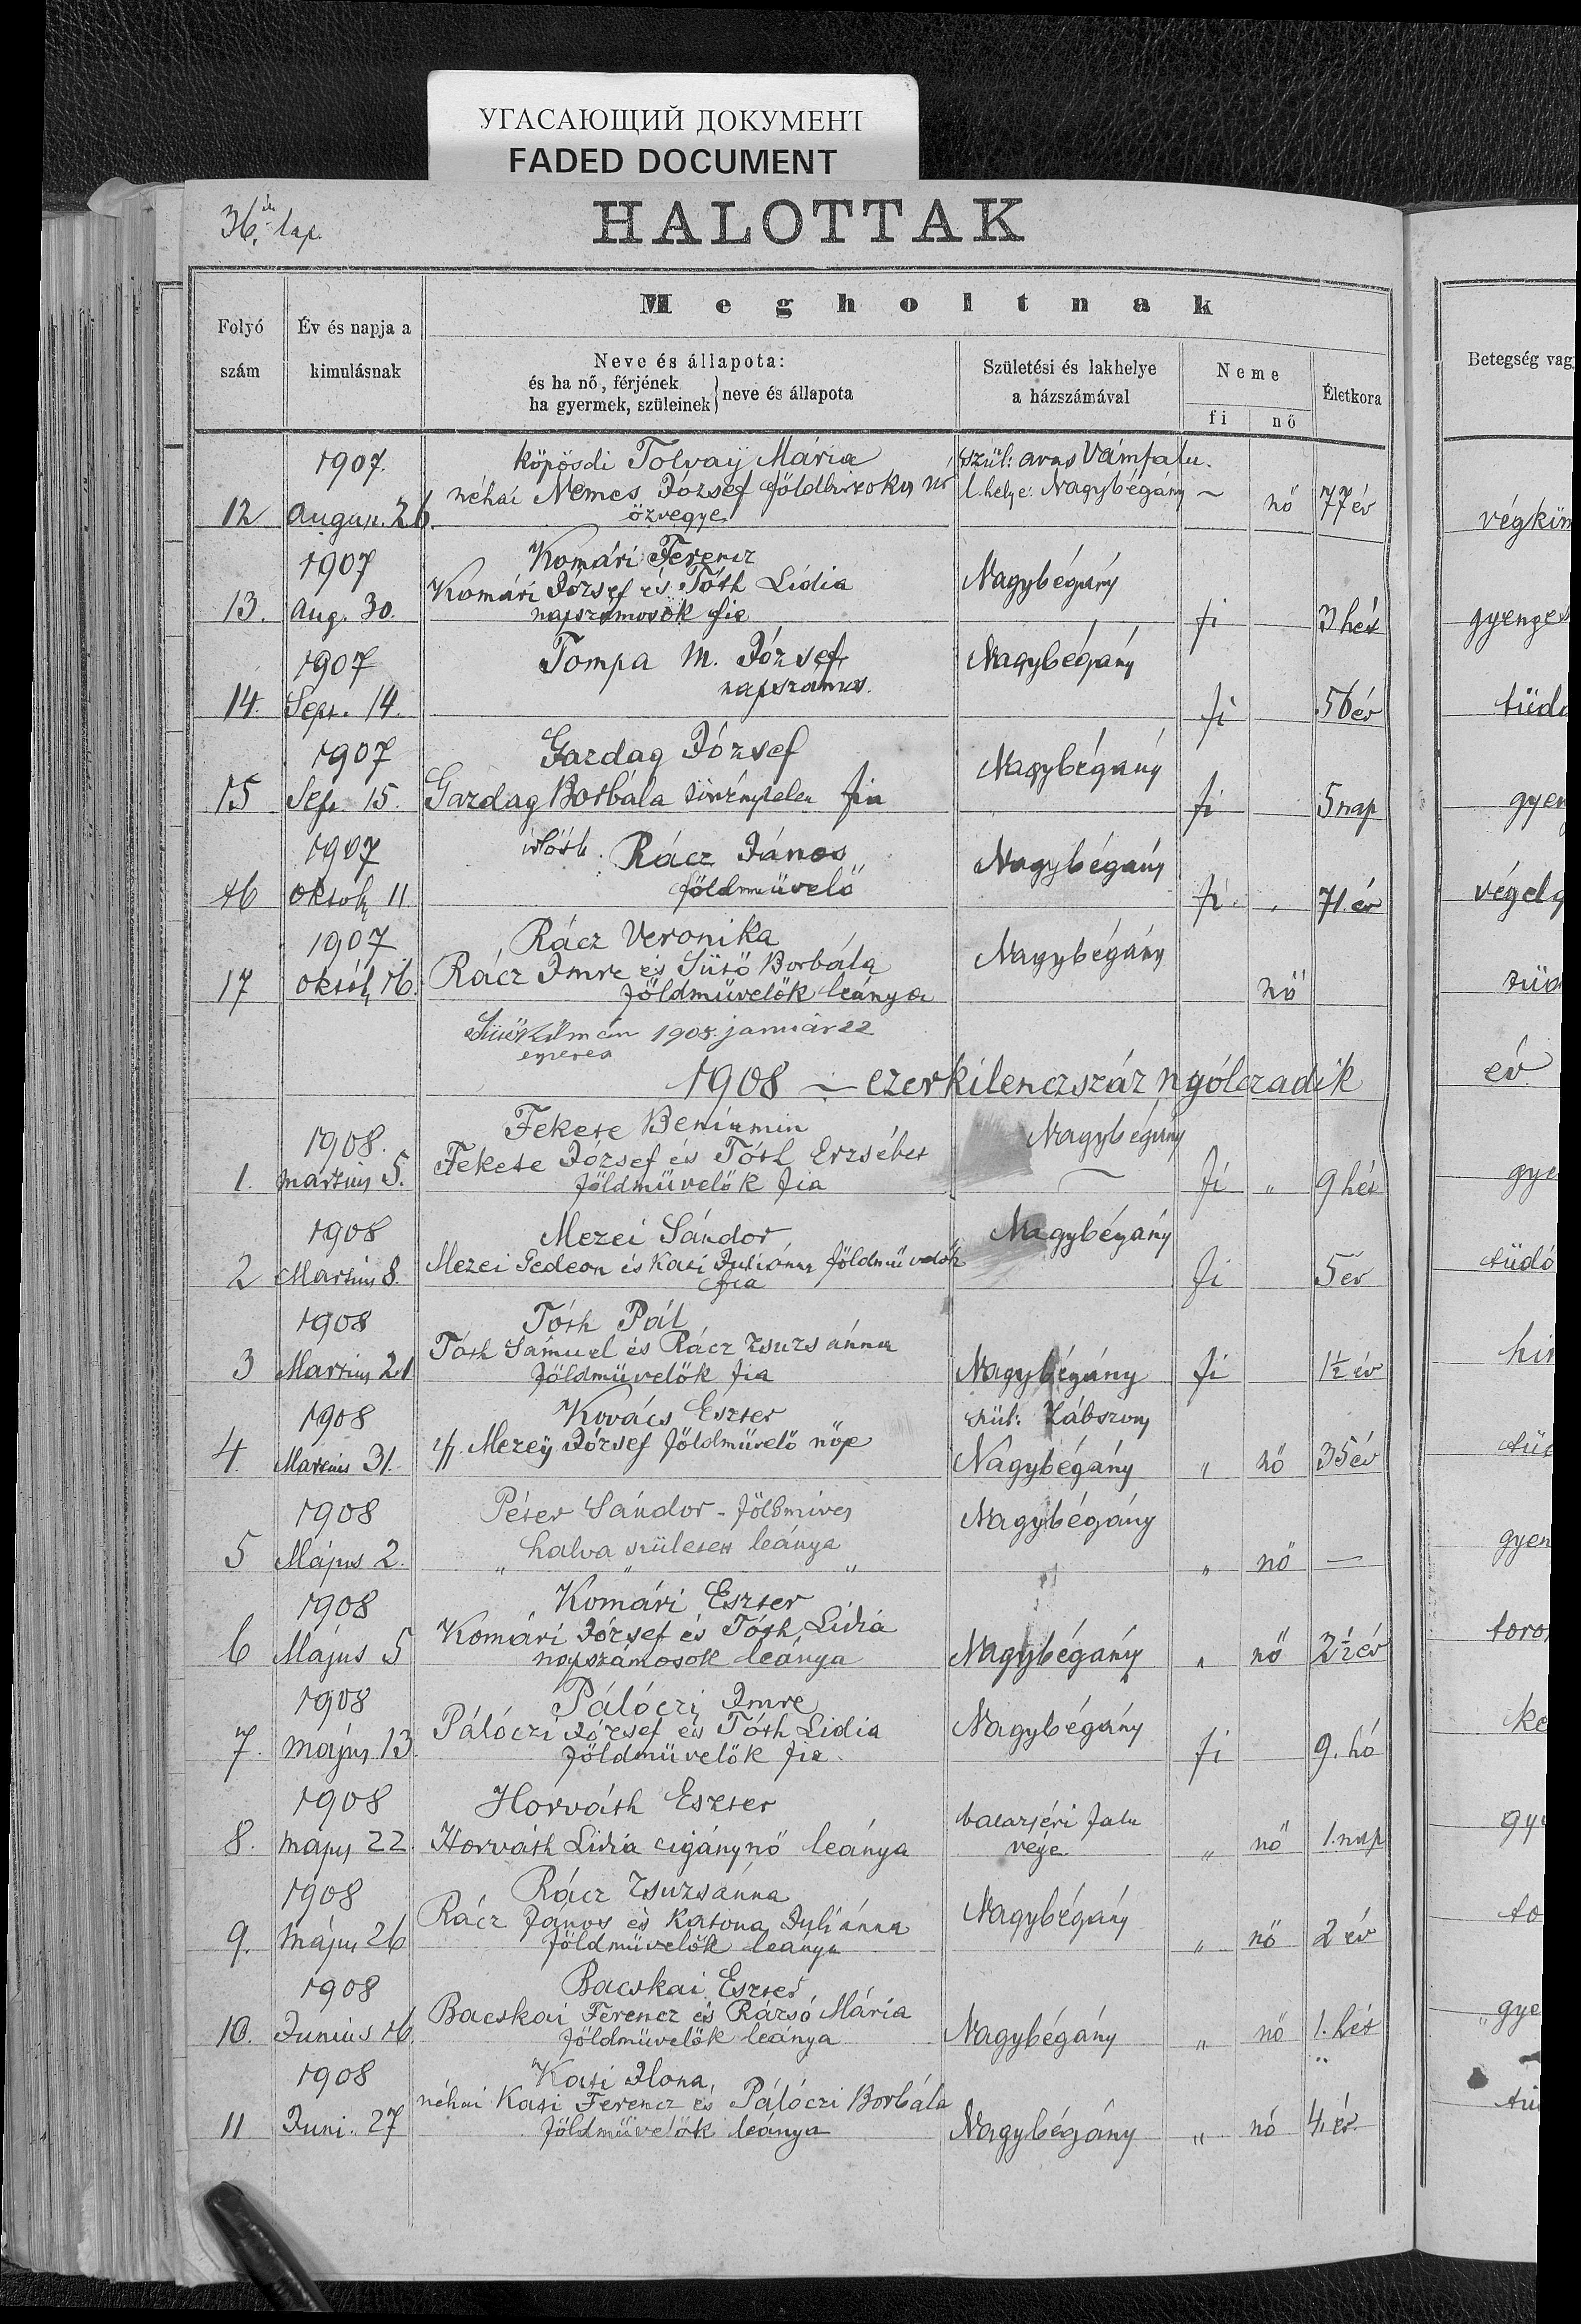 УГАСАЮЩИЙ ДОКУМЕНТ
FADED DOCUMENT
36. ik lap.
HALOTTAK
Folyó szám
Év és napja a kimulásnak
Megholtnak
Neve és állapota:
és ha nő, férjének
ha gyermek, szüleinek } neve és állapota
Születési és lakhelye a házszámával
Neme
fi nő
Életkora
Betegség vag
1907. köpösdi Tolvaÿ Mária szül: avas Vámfalu.
néhai Nemes József földbirtokos nő l. helye: Nagybégány
12 augus. 26. özvegye – nő 77 év végkim
1907 Komári Ferencz
Komári József és Tóth Lidia Nagybégány
13. Aug. 30. napszámosok fia fi 3 hét gyenges
1907 Tompa M. József Nagybégány
14. Sept. 14. napszámos. fi 56 év tüdő
1907 Gazdag József Nagybégány
15 Sept. 15. Gazdag Borbála törvénytelen fia fi 5 nap gyen
1907 idősb. Rácz János Nagybégány
16 Októb. 11. földmüvelő fi " 71. év végelg
1907 Rácz Veronika
Rácz Imre és Sütő Borbála Nagybégány
17 Októb. 16. földmüvelők leánya nő
Sütő Kálmán 1908. január 22
esperes
1908 – ezerkilenczszáz nyólczadik év
Fekete Beniámin
1908. Fekete József és Tóth Erzsébet Nagybégány
1. mártius 5. földmüvelők fia fi " 9 hét gye
1908 Mezei Sándor Nagybégány
Mezei Gedeon és Kasi Juliánna földmüvelők
2 Martius 8. fia fi 5 év tüdő
1908 Tóth Pál
Tóth Sámuel és Rácz Zsuzsánna
3 Martius 21 földmüvelők fia Nagybégány fi 1½ év
1908 Kovács Eszter szül: Zábszony
4. Martius 31. ifj. Mezeÿ József földmüvelő nője Nagybégány " nő 35 év
1908 Péter Sándor - földmives Nagybégány
5 Május 2. " halva született leánya " " nő — gyen
1908 Komári Eszter
Komári József és Tóth Lidia
6 Május 5 napszámosok leánya Nagybégány " nő 2½ év toro
1908 Pálóczi Imre
Pálóczi József és Tóth Lidia Nagybégány
7. május 13. földmüvelők fia fi 9. hó ke
1908 Horváth Eszter
8. május 22. Horváth Lidia cigánynő leánya falu vége " nő 1. nap
1908 Rácz Zsuzsánna
Rácz János és Katona Juliánna Nagybégány
9. május 26 földmüvelők leánya " nő 2 év to
1908 Bacskai Eszter
Bacskai Ferencz és Rázsó Mária
10. Junius 16. földmüvelők leánya Nagybégány " nő 1. hét gye
1908 Kasi Ilona,
néhai Kasi Ferencz és Pálóczi Borbála
11 Juni. 27 földmüvelők leánya Nagybégány " nő 4. év.